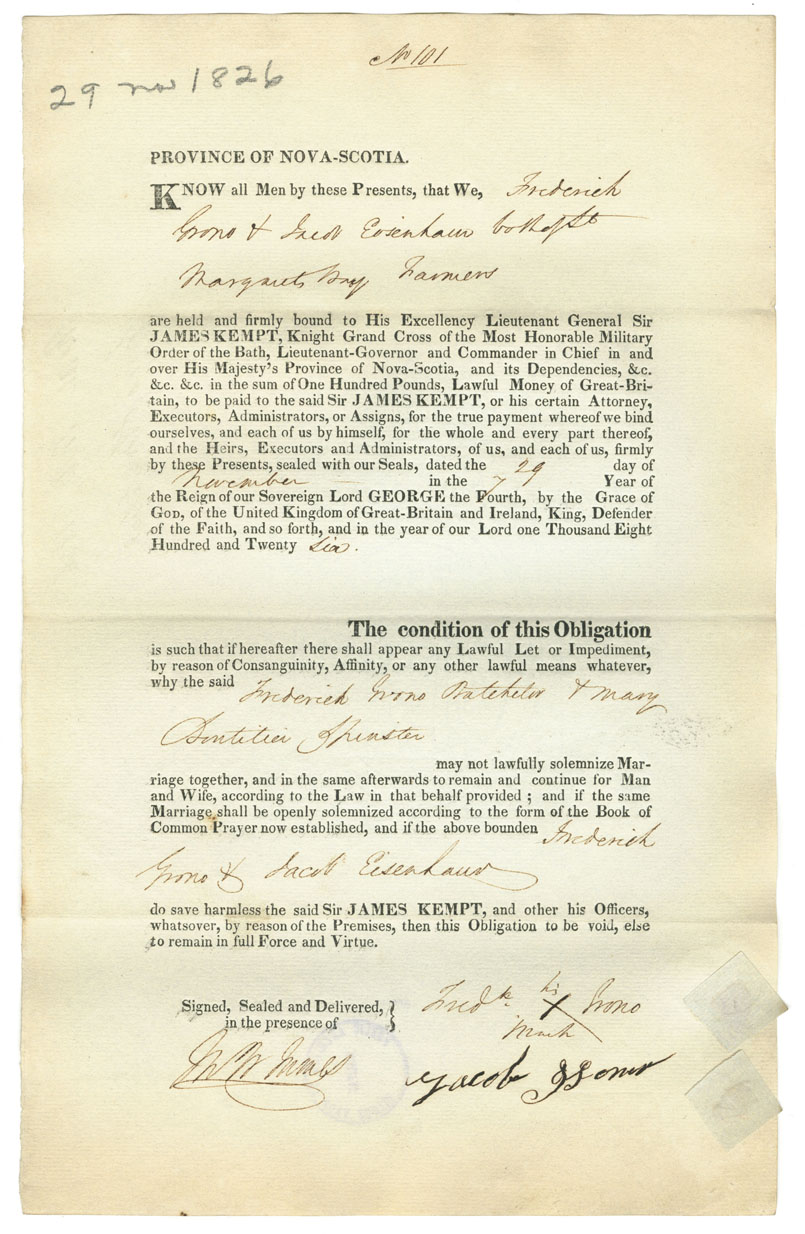 No 101
29 nov 1826
PROVINCE OF NOVA-SCOTIA.
KNOW all Men by these Presents, that We, Frederick
Grono & Jacob Eisenhaur both of St
Margarets Bay Farmers
are held and firmly bound to His Excellency Lieutenant General Sir
JAMES KEMPT, Knight Grand Cross of the Most Honorable Military
Order of the Bath, Lieutenant-Governor and Commander in Chief in and
over His Majesty's Province of Nova-Scotia, and its Dependencies, &c.
&c. &c. in the sum of One Hundred Pounds, Lawful Money of Great-Bri-
tain, to be paid to the said Sir JAMES KEMPT, or his certain Attorney,
Executors, Administrators, or Assigns, for the true payment whereof we bind
ourselves, and each of us by himself, for the whole and every part thereof,
and the Heirs, Executors and Administrators, of us, and each of us, firmly
by these Presents, sealed with our Seals, dated the 29 day of
November in the 7 Year of
the Reign of our Sovereign Lord GEORGE the Fourth, by the Grace of
GOD, of the United Kingdom of Great-Britain and Ireland, King, Defender
of the Faith, and so forth, and in the year of our Lord one Thousand Eight
Hundred and Twenty Six.
The condition of this Obligation
is such that if hereafter there shall appear any Lawful Let or Impediment,
by reason of Consanguinity, Affinity, or any other lawful means whatever,
why the said Frederick Grono Batchelor & Mary
Boutilier Spinster
may not lawfully solemnize Mar-
riage together, and in the same afterwards to remain and continue for Man
and Wife, according to the Law in that behalf provided ; and if the same
Marriage shall be openly solemnized according to the form of the Book of
Common Prayer now established, and if the above bounden Frederick
Grono & Jacob Eisenhaur
do save harmless the said Sir JAMES KEMPT, and other his Officers,
whatsover, by reason of the Premises, then this Obligation to be void, else
to remain in full Force and Virtue.
Signed, Sealed and Delivered,
in the presence of
Fredk his X Grono
mark
Jacob